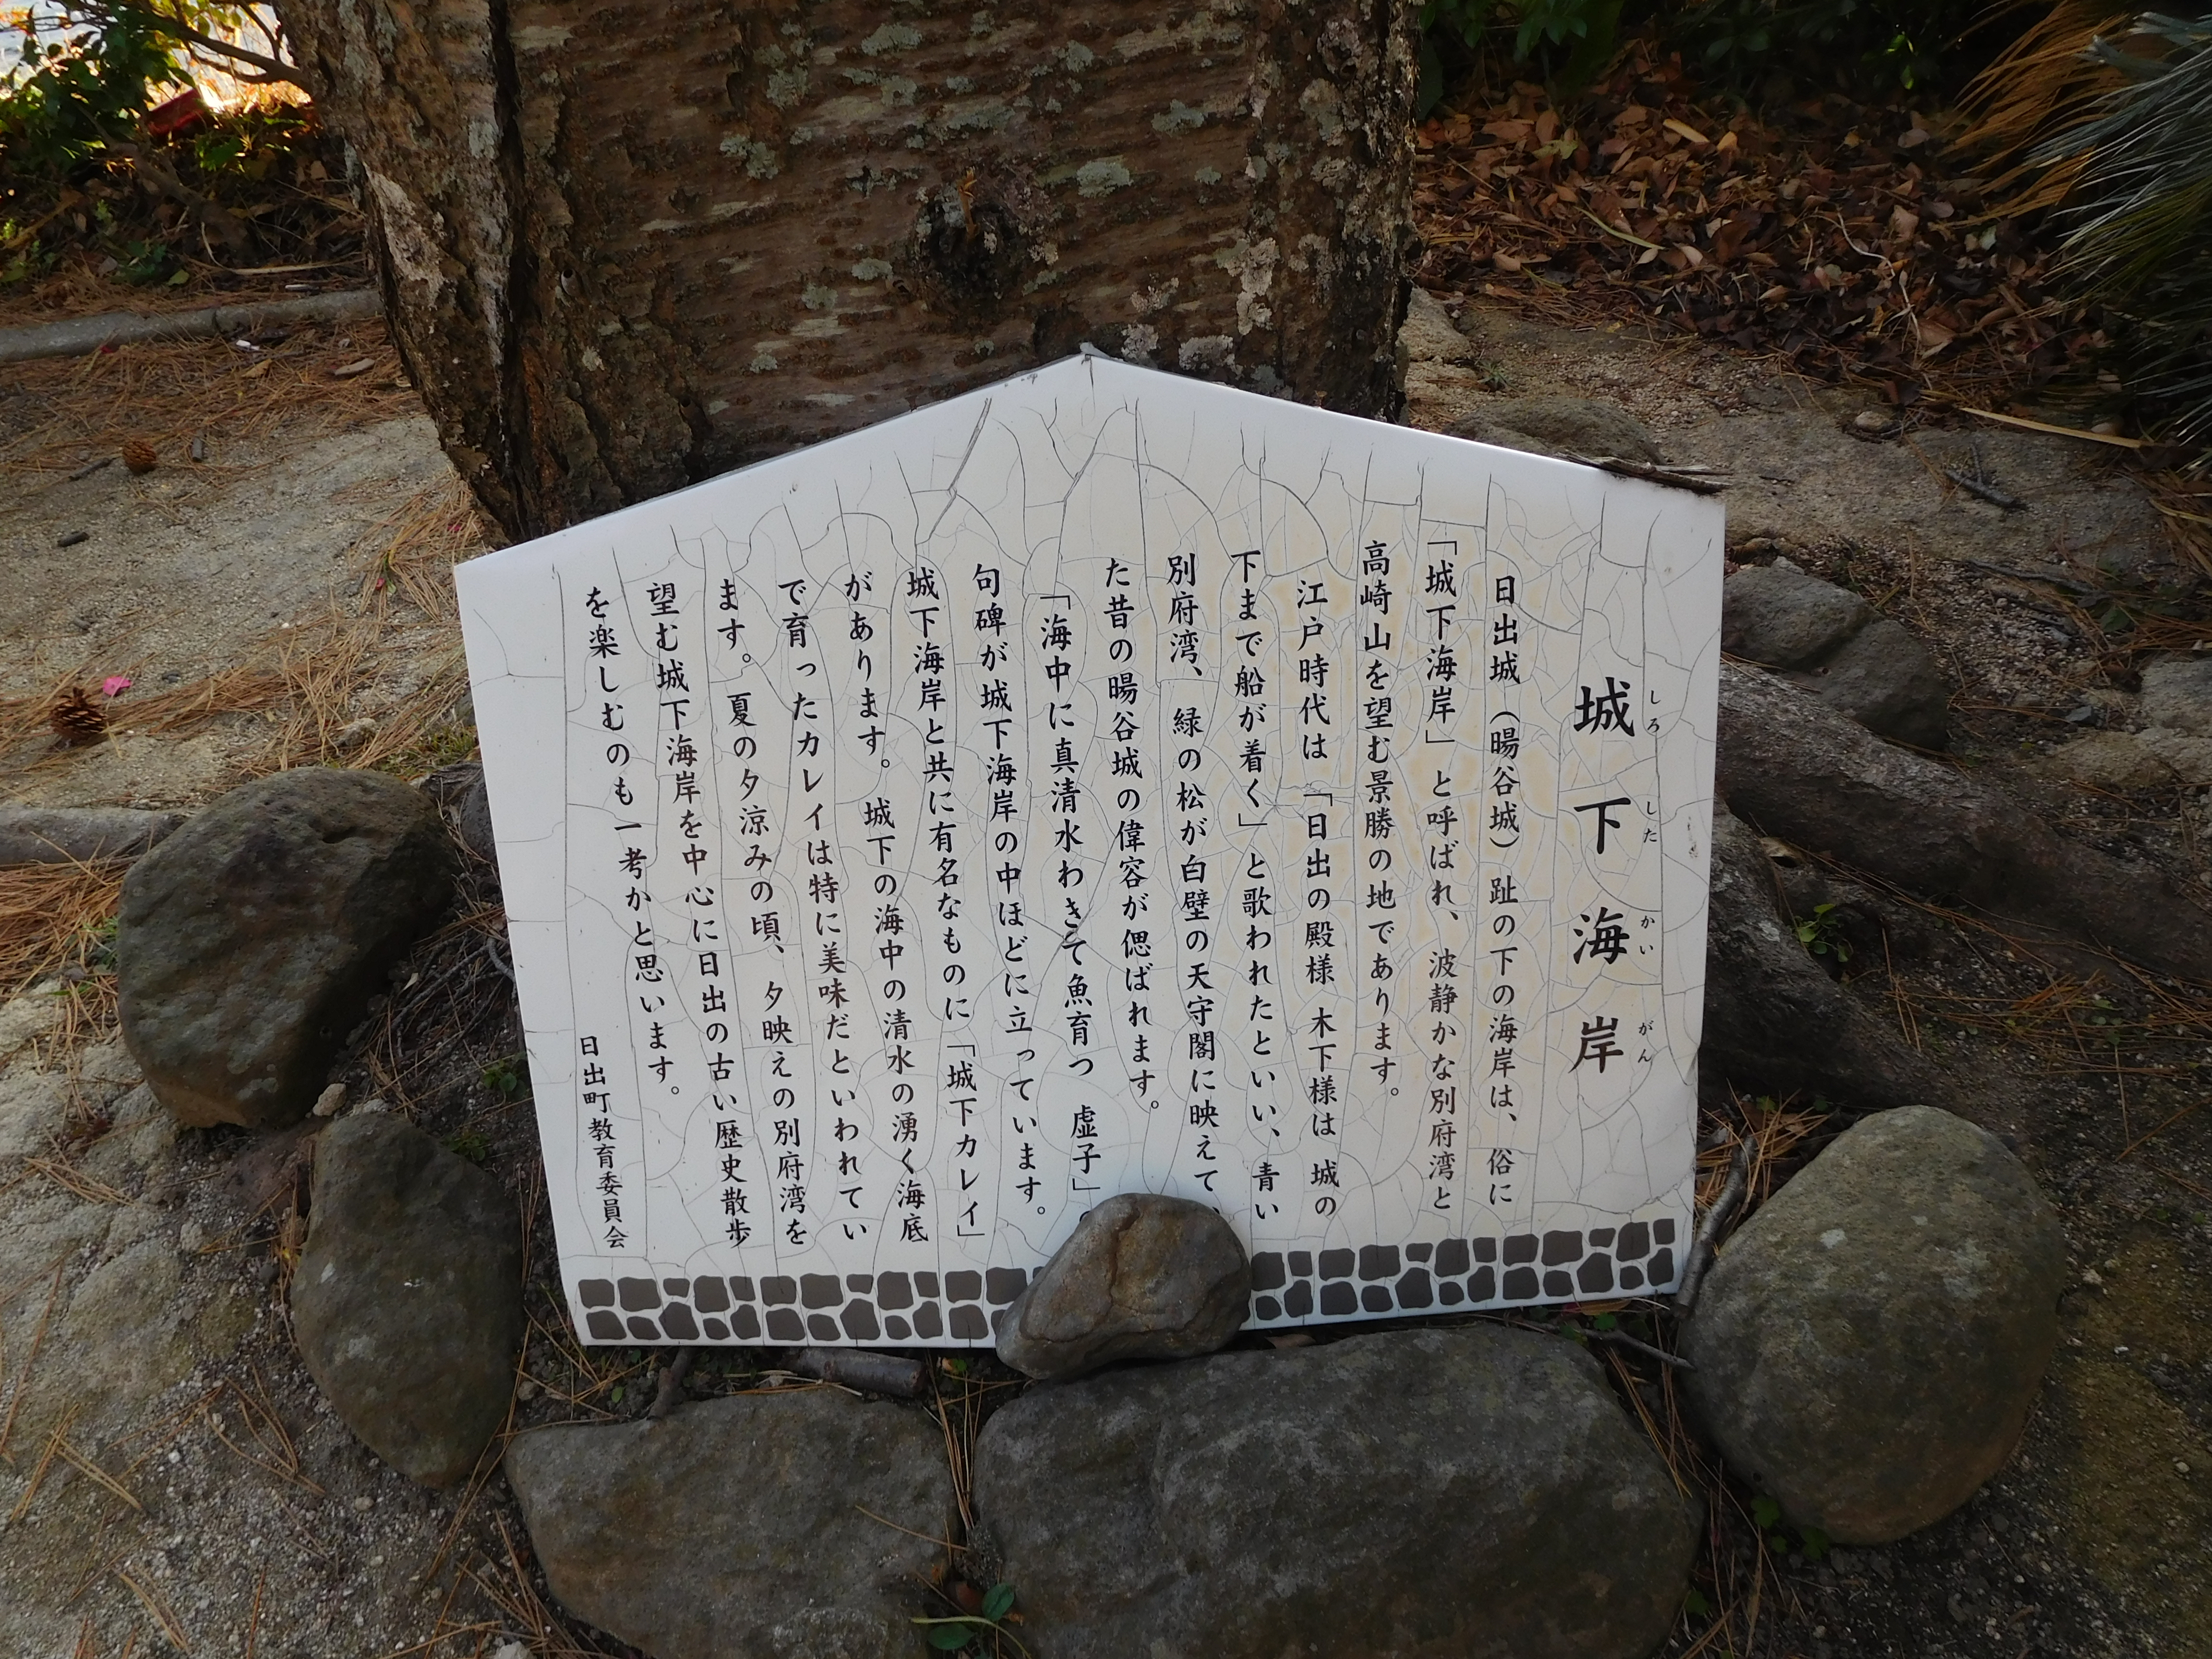 城下海岸
しろしたかいがん
日出城（暘谷城）趾の下の海岸は、俗に
「城下海岸」と呼ばれ、波静かな別府湾と
高崎山を望む景勝の地であります。
江戸時代は「日出の殿様 木下様は 城の
下まで船が着く」と歌われたといい、青い
別府湾、緑の松が白壁の天守閣に映えて、
た昔の暘谷城の偉容が偲ばれます。
「海中に真清水わきて魚育つ 虚子」
句碑が城下海岸の中ほどに立っています。
城下海岸と共に有名なものに「城下カレイ」
があります。城下の海中の清水の湧く海底
で育ったカレイは特に美味だといわれてい
ます。夏の夕涼みの頃、夕映えの別府湾を
望む城下海岸を中心に日出の古い歴史散歩
を楽しむのも一考かと思います。
日出町教育委員会